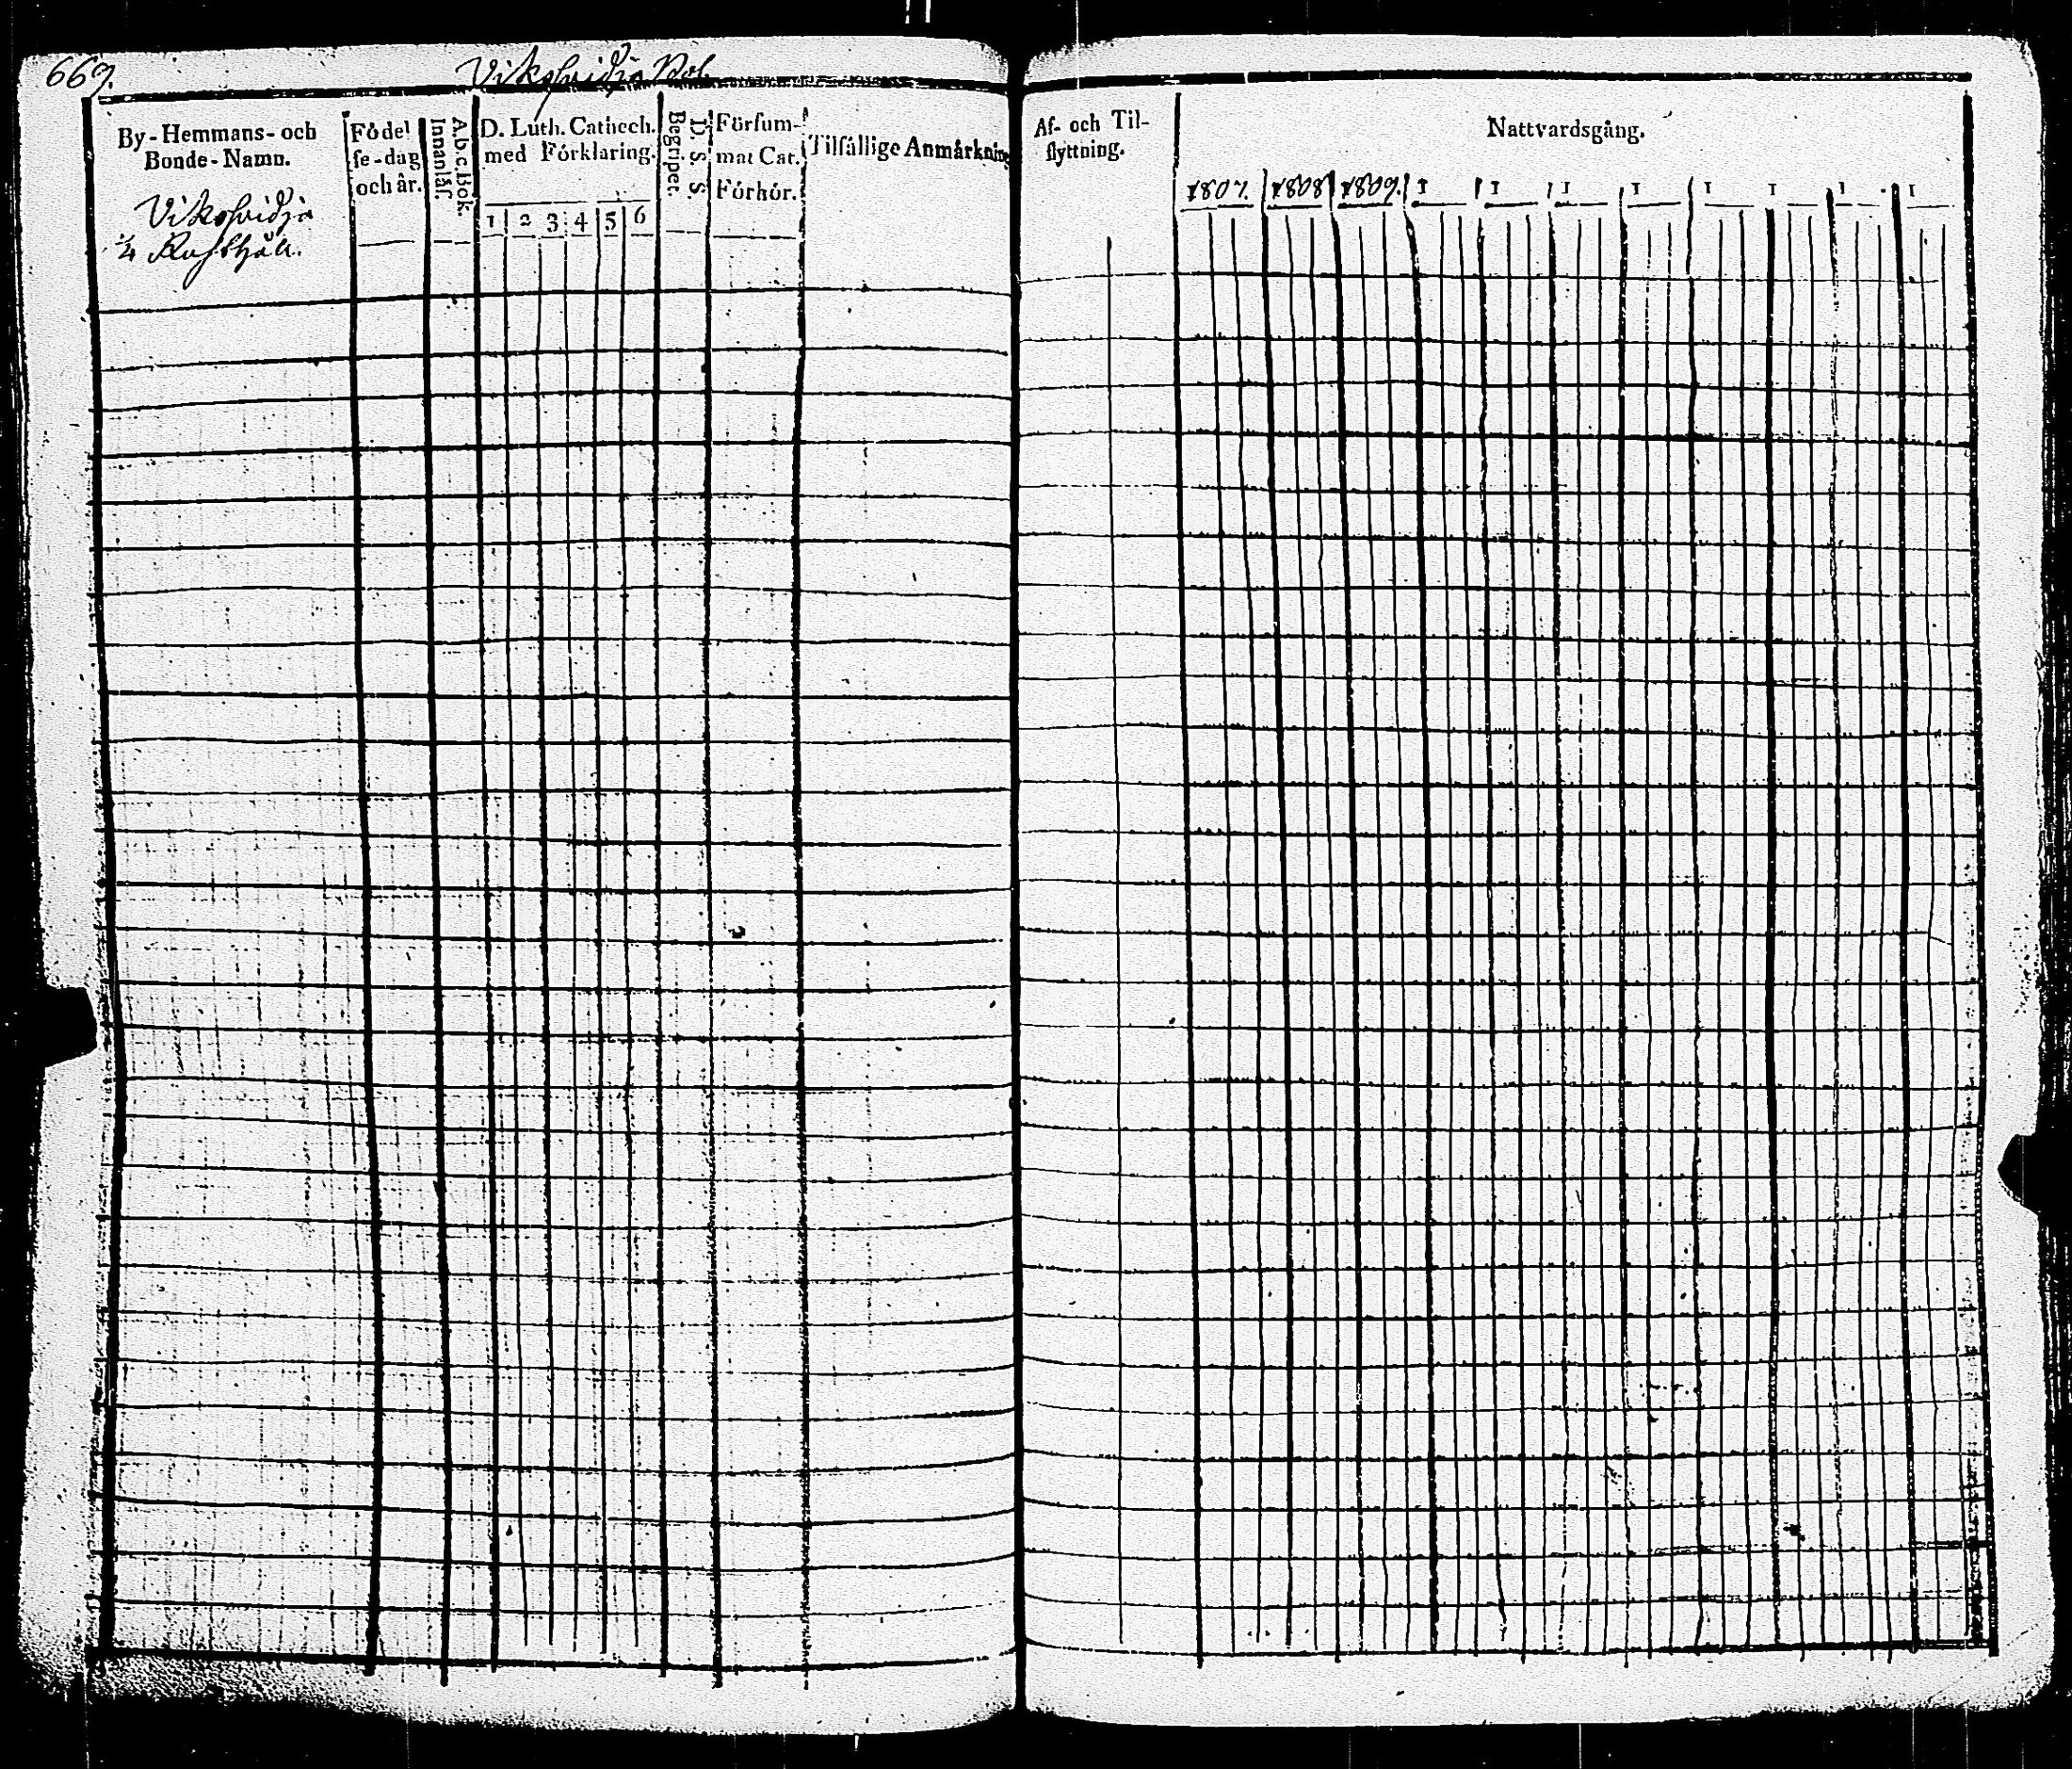 669.
Vikshidja Rot.
By-Hemmans- och
Bonde-Namn.
Födel
se-dag
och år.
A.b.c. Bok.
Innanläs.
D. Luth. Cathech.
med Förklaring.
1 2 3 4 5 6
D. S. S.
Begriper.
Försum-
mat Cat.
Förhör.
Tilfällige Anmärknin
Vikshidja
1/4 Rusthåll.
Af- och Til-
flyttning.
Nattvardsgång.
1807. 1808 1809. 1 1 1 1 1 1 1 1